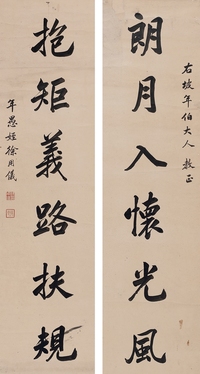 右坡年伯大人 教正
朗月入懷光風
抱矩義路扶規
年愚姪徐用儀